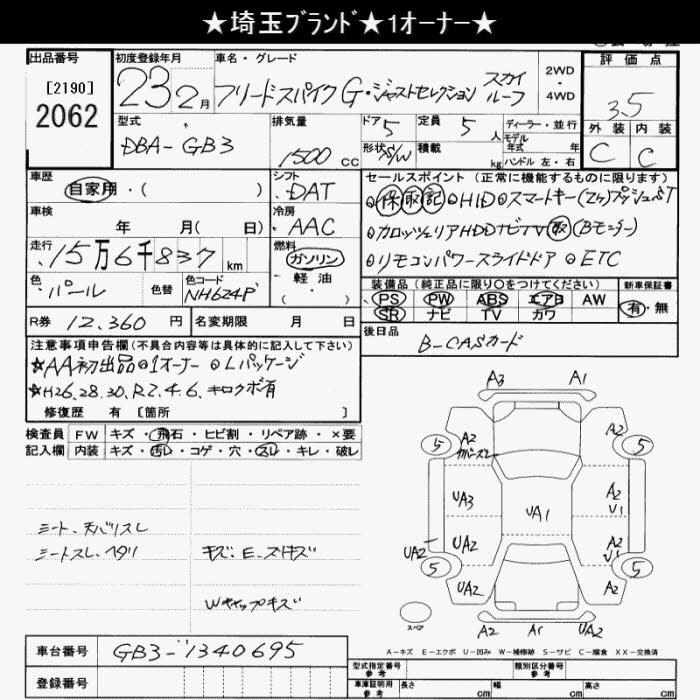 ★埼玉ﾌﾞﾗﾝﾄﾞ★1オーナー★
出品番号
[2190]
2062
初度登録年月
23 2月
車名・グレード
フリードスパイク G・ジャストセレクション スカイルーフ
2WD
-
4WD
評価点
3.5
外装 内装
C C
型式
DBA-GB3
排気量
1500 cc
ドア 5
形状 S/W
定員 5 人
積載 kg
ディーラー・並行
モデル年式 年
ハンドル 左・右
車歴
自家用・( )
シフト
DAT
車検
年 月( 日)
冷房
AAC
走行
15万6千837 km
燃料
ガソリン
軽油
( ・ )
色
パール
色替
色コード
NH624P
R券 12,360 円
名変期限 月 日
セールスポイント(正常に機能するものに限ります)
⊙保取記 ⊙HID ⊙スマートキー(2ヶ)プッシュST
⊙カロッツェリアHDDナビTV取(Bモニター)
⊙リモコンパワースライドドア ⊙ETC
装備品(純正品に限り○をつけてください)
PS PW ABS エアB AW
SR ナビ TV カワ
新車保証書
有・無
後日品
B-CASカード
注意事項申告欄(不具合内容等は具体的に記入して下さい)
★AA初出品 ⊙1オーナー ⊙Lパッケージ
★H26.28.30.R2.4.6.キロクボ有
修復歴 有 [箇所 ]
検査員記入欄
FW キズ・飛石・ヒビ割・リペア跡・×要
内装 キズ・汚レ・コゲ・穴・スレ・キレ・破レ
シート、天バリスレ
シートスレ、ヘタリ
キズ:E-ズリキズ
Wキャップキズ
A3 A1
5 A2 カバースレ A2 5
UA3 UA1 A2 U1
UA2 UA2 A2 U1
5 UA2 A2 5
スペア
A2 A1 UA2
A-キズ E-エクボ U-凹み W-補修跡 S-サビ C-腐食 XX-交換済
車台番号 GB3-1340695
登録番号
型式指定番号 参考
類別区分番号 参考
車庫証明用 参考 長さ cm 幅 cm 高さ cm